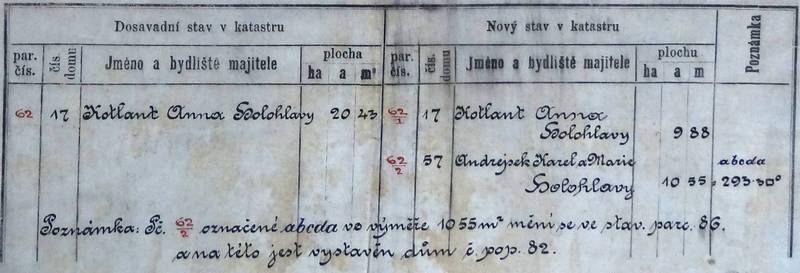 Dosavadní stav v katastru Nový stav v katastru Poznámka
par. čís. čís. domu Jméno a bydliště majitele plocha ha a m² par. čís. čís. domu Jméno a bydliště majitele plochu ha a m
62 17 Kotlant Anna Holohlavy 20 43 62/1 17 Kotlant Anna
Holohlavy 9 88
62/2 57 Andrejsek Karel a Marie abcda
Holohlavy 10 55 = 293.
Poznámka: Pč. 62/2 označené abcda ve výměře 1055m² mění se ve stav. parc. 86.
a na této jest vystavěn dům č. pop. 82.